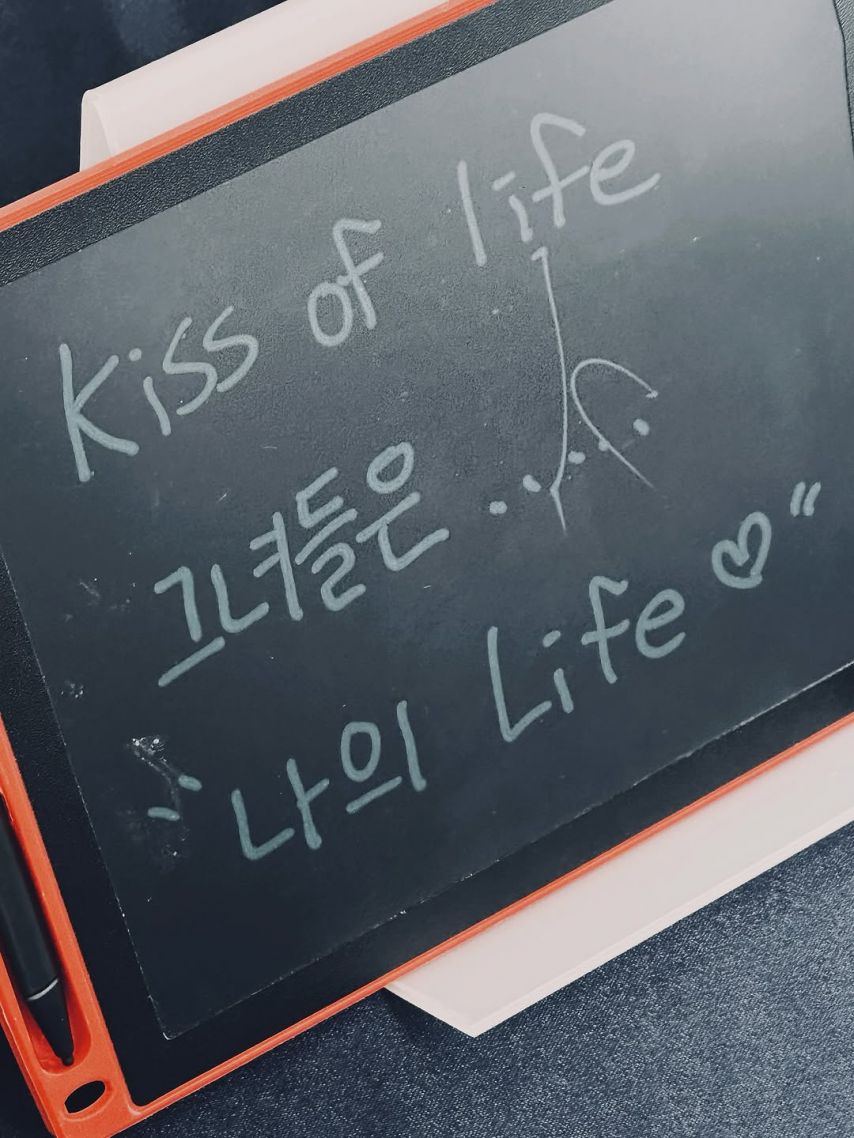 Kiss of life
그녀들은 .....
"나의 Life♡"